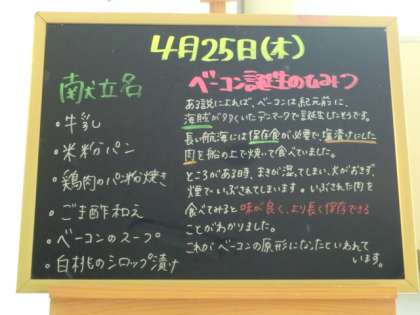 4月25日(木)
献立名
・牛乳
・米粉パン
・鶏肉のパン粉焼き
・ごま酢和え
・ベーコンのスープ
・白桃のシロップ漬け
ベーコン誕生のひみつ
ある説によれば、ベーコンは紀元前に、
海賊が多くいたデンマークで誕生したそうです。
長い航海には保存食が必要で、塩漬けにした
肉を船の上で焼いて食べていました。
ところがある時、まきが湿ってしまい、火がおきず、
煙でいぶされてしまいます。いぶされた肉を
食べてみると味が良く、より長く保存できる
ことがわかりました。
これがベーコンの原形になったといわれて
います。